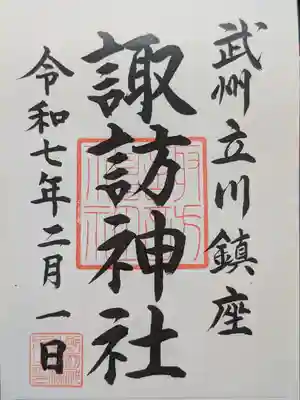 武州立川鎮座
諏訪神社
令和七年二月一日